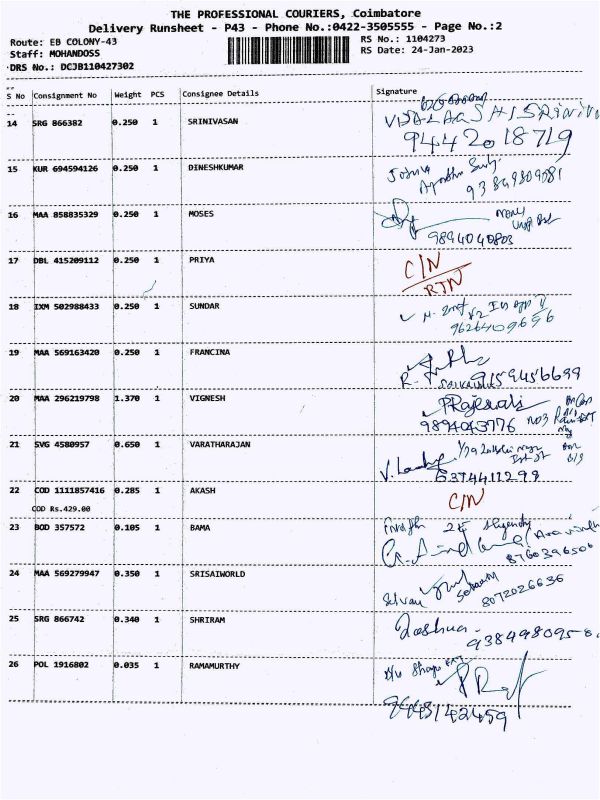 THE PROFESSIONAL COURIERS, Coimbatore
Delivery Runsheet - P43 - Phone No.:0422-3505555 - Page No.:2
Route: EB COLONY-43 RS No.: 1104273
Staff: MOHANDOSS RS Date: 24-Jan-2023
DRS No.: DCJB110427302
S No Consignment No Weight PCS Consignee Details Signature
14 SRG 866382 0.250 1 SRINIVASAN
9442018719
15 KUR 694594126 0.250 1 DINESHKUMAR
16 MAA 858835329 0.250 1 MOSES
9894040803
17 DBL 415209112 0.250 1 PRIYA C/N
RTN
18 IXM 502988433 0.250 1 SUNDAR
9626409656
19 MAA 569163420 0.250 1 FRANCINA
9159456699
20 MAA 296219798 1.370 1 VIGNESH
9894043776
21 SVG 4580957 0.650 1 VARATHARAJAN
6374411299
22 COD 1111857416 0.285 1 AKASH C/N
COD Rs.429.00
23 BOD 357572 0.105 1 BAMA
8760396506
24 MAA 569279947 0.350 1 SRISAIWORLD
Selvan 8072026636
25 SRG 866742 0.340 1 SHRIRAM Joshua
26 POL 1916802 0.035 1 RAMAMURTHY